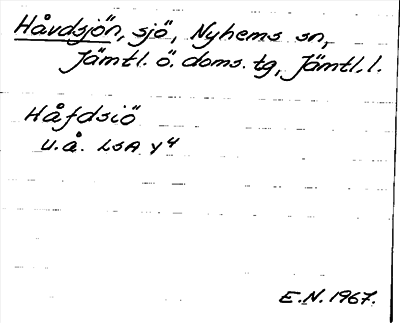 Håvdsjön, sjö, Nyhems sn,
Jämtl. ö. doms. tg, Jämtl. l.
Håfdsiö
u.å. LSA Y4
E.N. 1967.